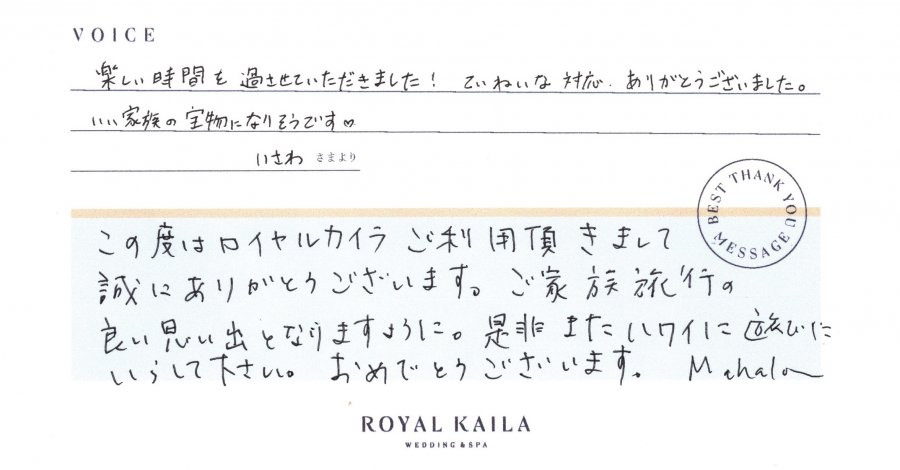 VOICE
楽しい時間を過させていただきました! ていねいな対応、ありがとうございました。
いい家族の宝物になりそうです♡
いさわ さまより
BEST THANK YOU MESSAGE
この度はロイヤルカイラご利用頂きまして
誠にありがとうございます。ご家族旅行の
良い思い出となりますように。是非またハワイに遊びに
いらして下さい。おめでとうございます。 Mahalo
ROYAL KAILA
WEDDING & SPA